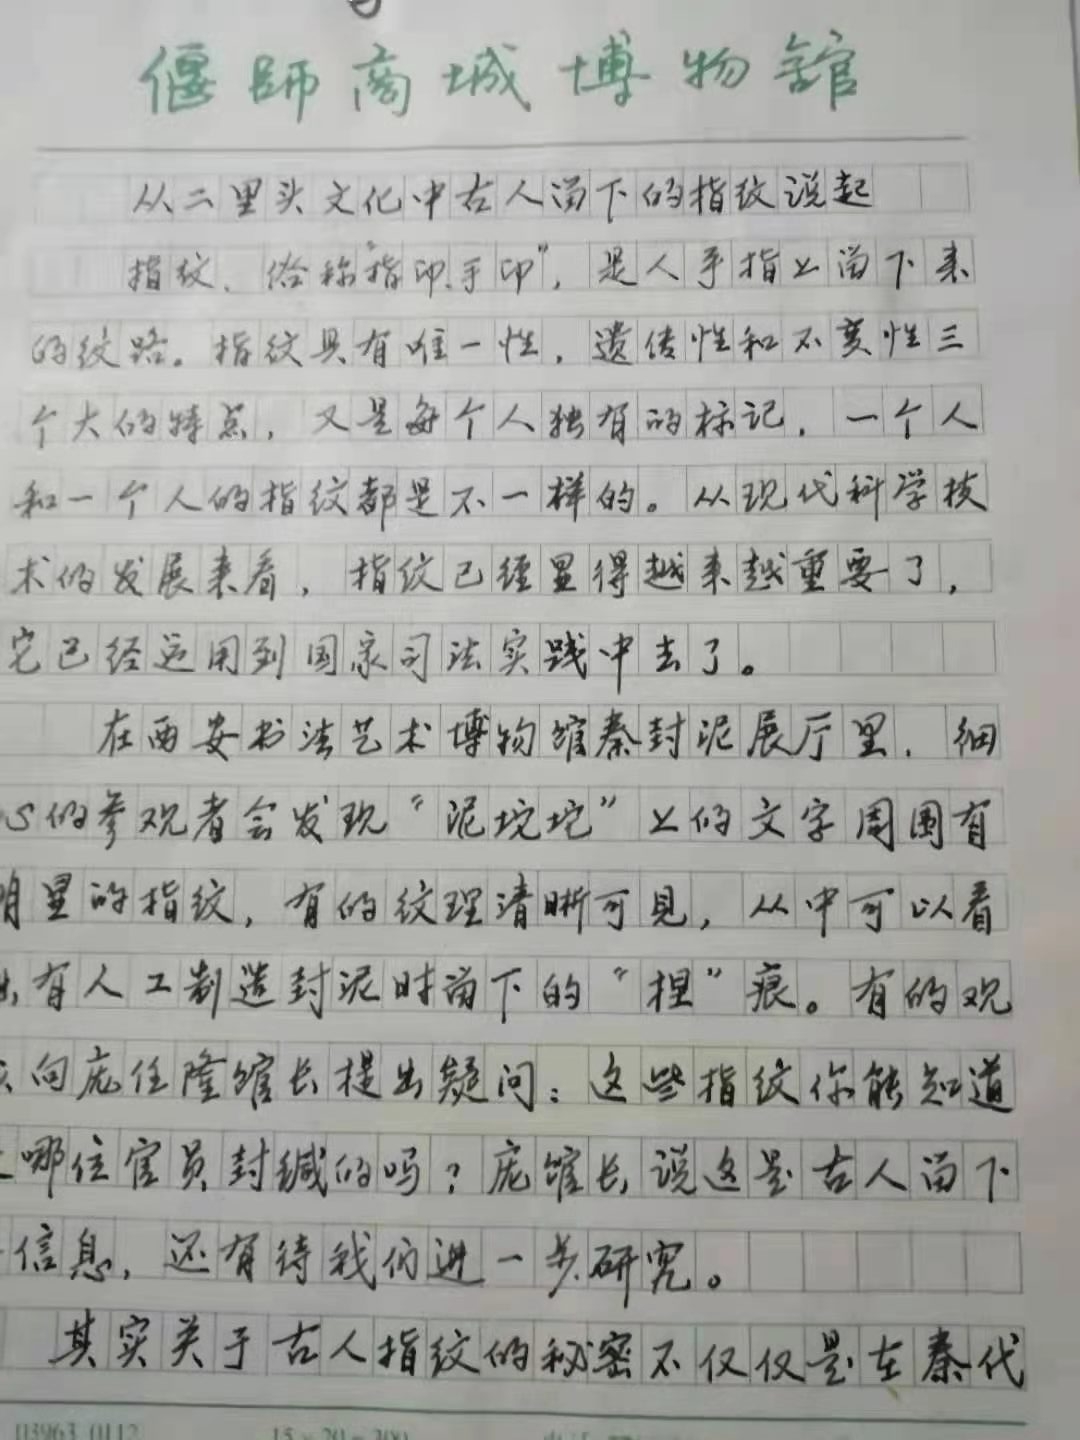 偃師商城博物館
从二里头文化中古人留下的指纹说起
指纹、俗称“指印、手印”，是人手指上留下来
的纹路。指纹具有唯一性，遗传性和不变性三
个大的特点，又是每个人独有的标记，一个人
和一个人的指纹都是不一样的。从现代科学技
术的发展来看，指纹已经显得越来越重要了，
它已经运用到国家司法实践中去了。
在西安书法艺术博物馆秦封泥展厅里，细
心的参观者会发现“泥垞垞”上的文字周围有
明显的指纹，有的纹理清晰可见，从中可以看
出有人工制造封泥时留下的“捏”痕。有的观
众向庞任隆馆长提出疑问：这些指纹你能知道
哪位官员封缄的吗？庞馆长说这是古人留下
信息，还有待我们进一步研究。
其实关于古人指纹的秘密不仅仅是在秦代
03963 0112
15×20=300